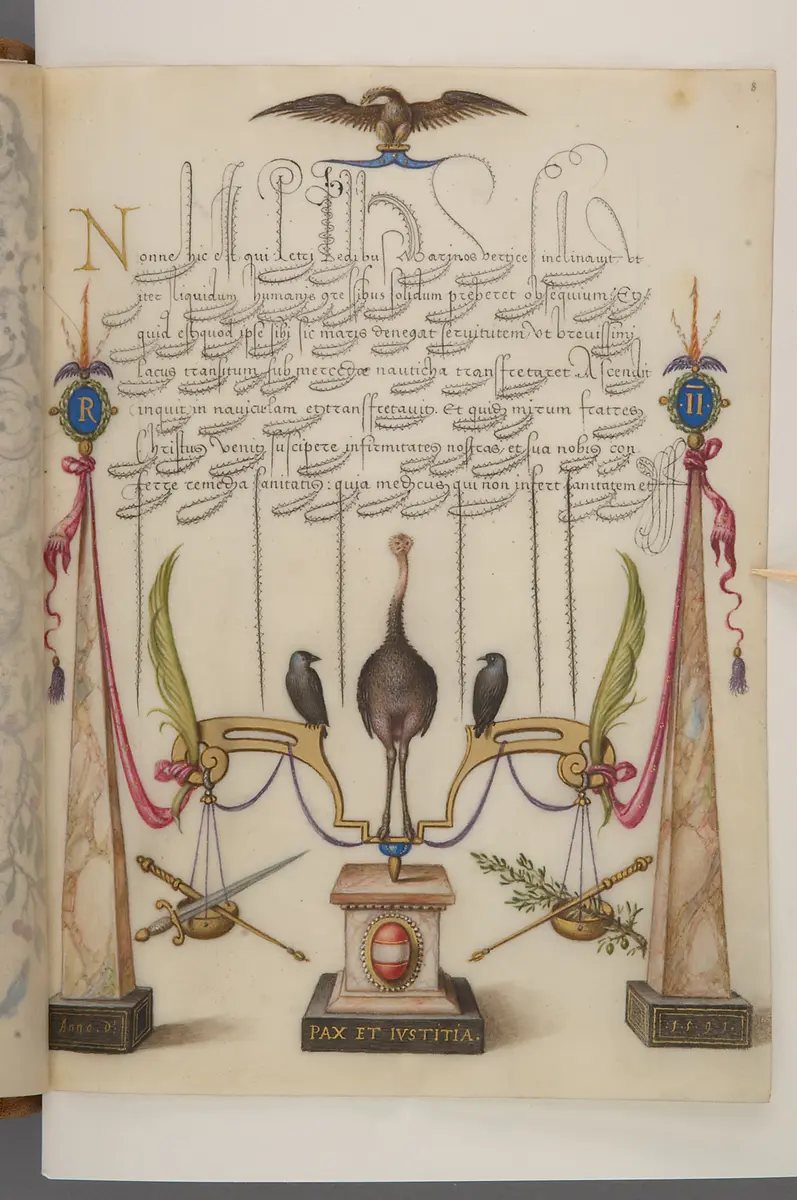 8
Nonne hic est qui Petri pedibus Marinos vertice inclinavit. Ut
iter liquidum humanis gressibus solidum preberet obsequium. Et
quid est quod ipse sibi sic maris denegat servitutem, Ut brevissimi
lacus transitum sub mercede nauticha transfretaret. Ascendit
inquit in naviculam et transfretavit. Et quid mirum fratres,
Christus Venit suscipere infirmitates nostras, et sua nobis con
ferre remedia sanitatis: quia medicus qui non infert sanitatem et
R
II
Anno. Di
PAX ET IVSTITIA.
.1.5.9.1.